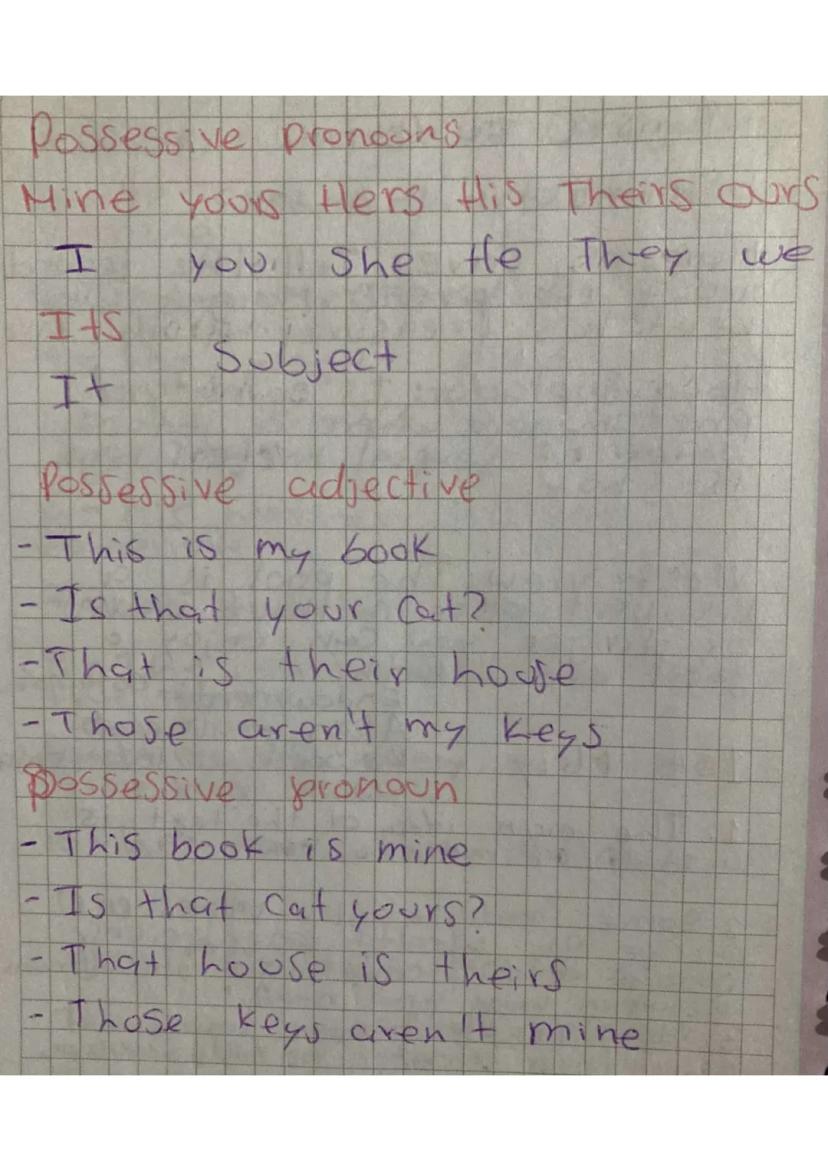 Possessive pronouns
Mine yours Hers His Theirs ours
I you she He They we
Its
Subject
It
Possessive adjective
- This is my book
- Is that your cat?
- That is their house
- Those aren't my keys
Possessive pronoun
- This book is mine
- Is that cat yours?
- That house is theirs
- Those keys aren't mine